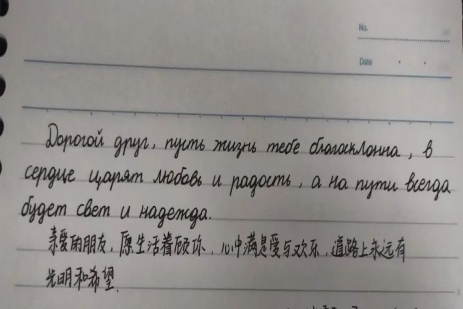 No.
Date
Дорогой друг, пусть жизнь тебе благосклонна, в
сердце царят любовь и радость, а на пути всегда
будет свет и надежда.
亲爱的朋友, 愿生活眷顾你, 心中满是爱与欢乐, 道路上永远有
光明和希望.